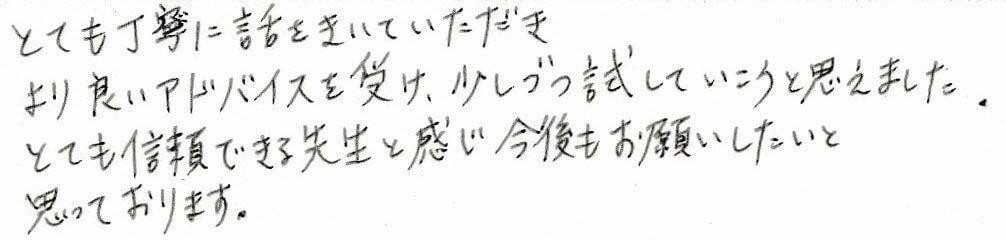 とても丁寧に話をきいていただき
より良いアドバイスを受け、少しづつ試していこうと思えました.
とても信頼できる先生と感じ今後もお願いしたいと
思っております。